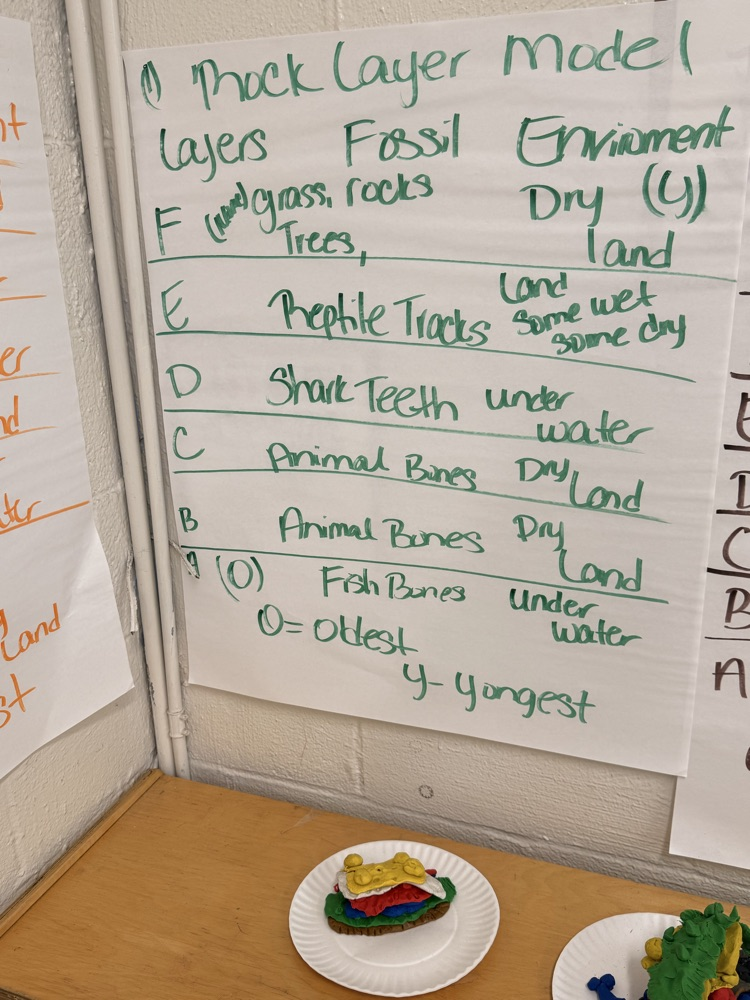 1) Rock Layer Model
Layers Fossil Enviroment
F grass, rocks Dry (Y)
Trees, land
E Reptile Tracks Land some wet some dry
D Shark Teeth under water
C Animal Bones Dry Land
B Animal Bones Dry Land
A (O) Fish Bones Under water
O= oldest
Y- Yongest
er
Land
st
E
D
C
B
A